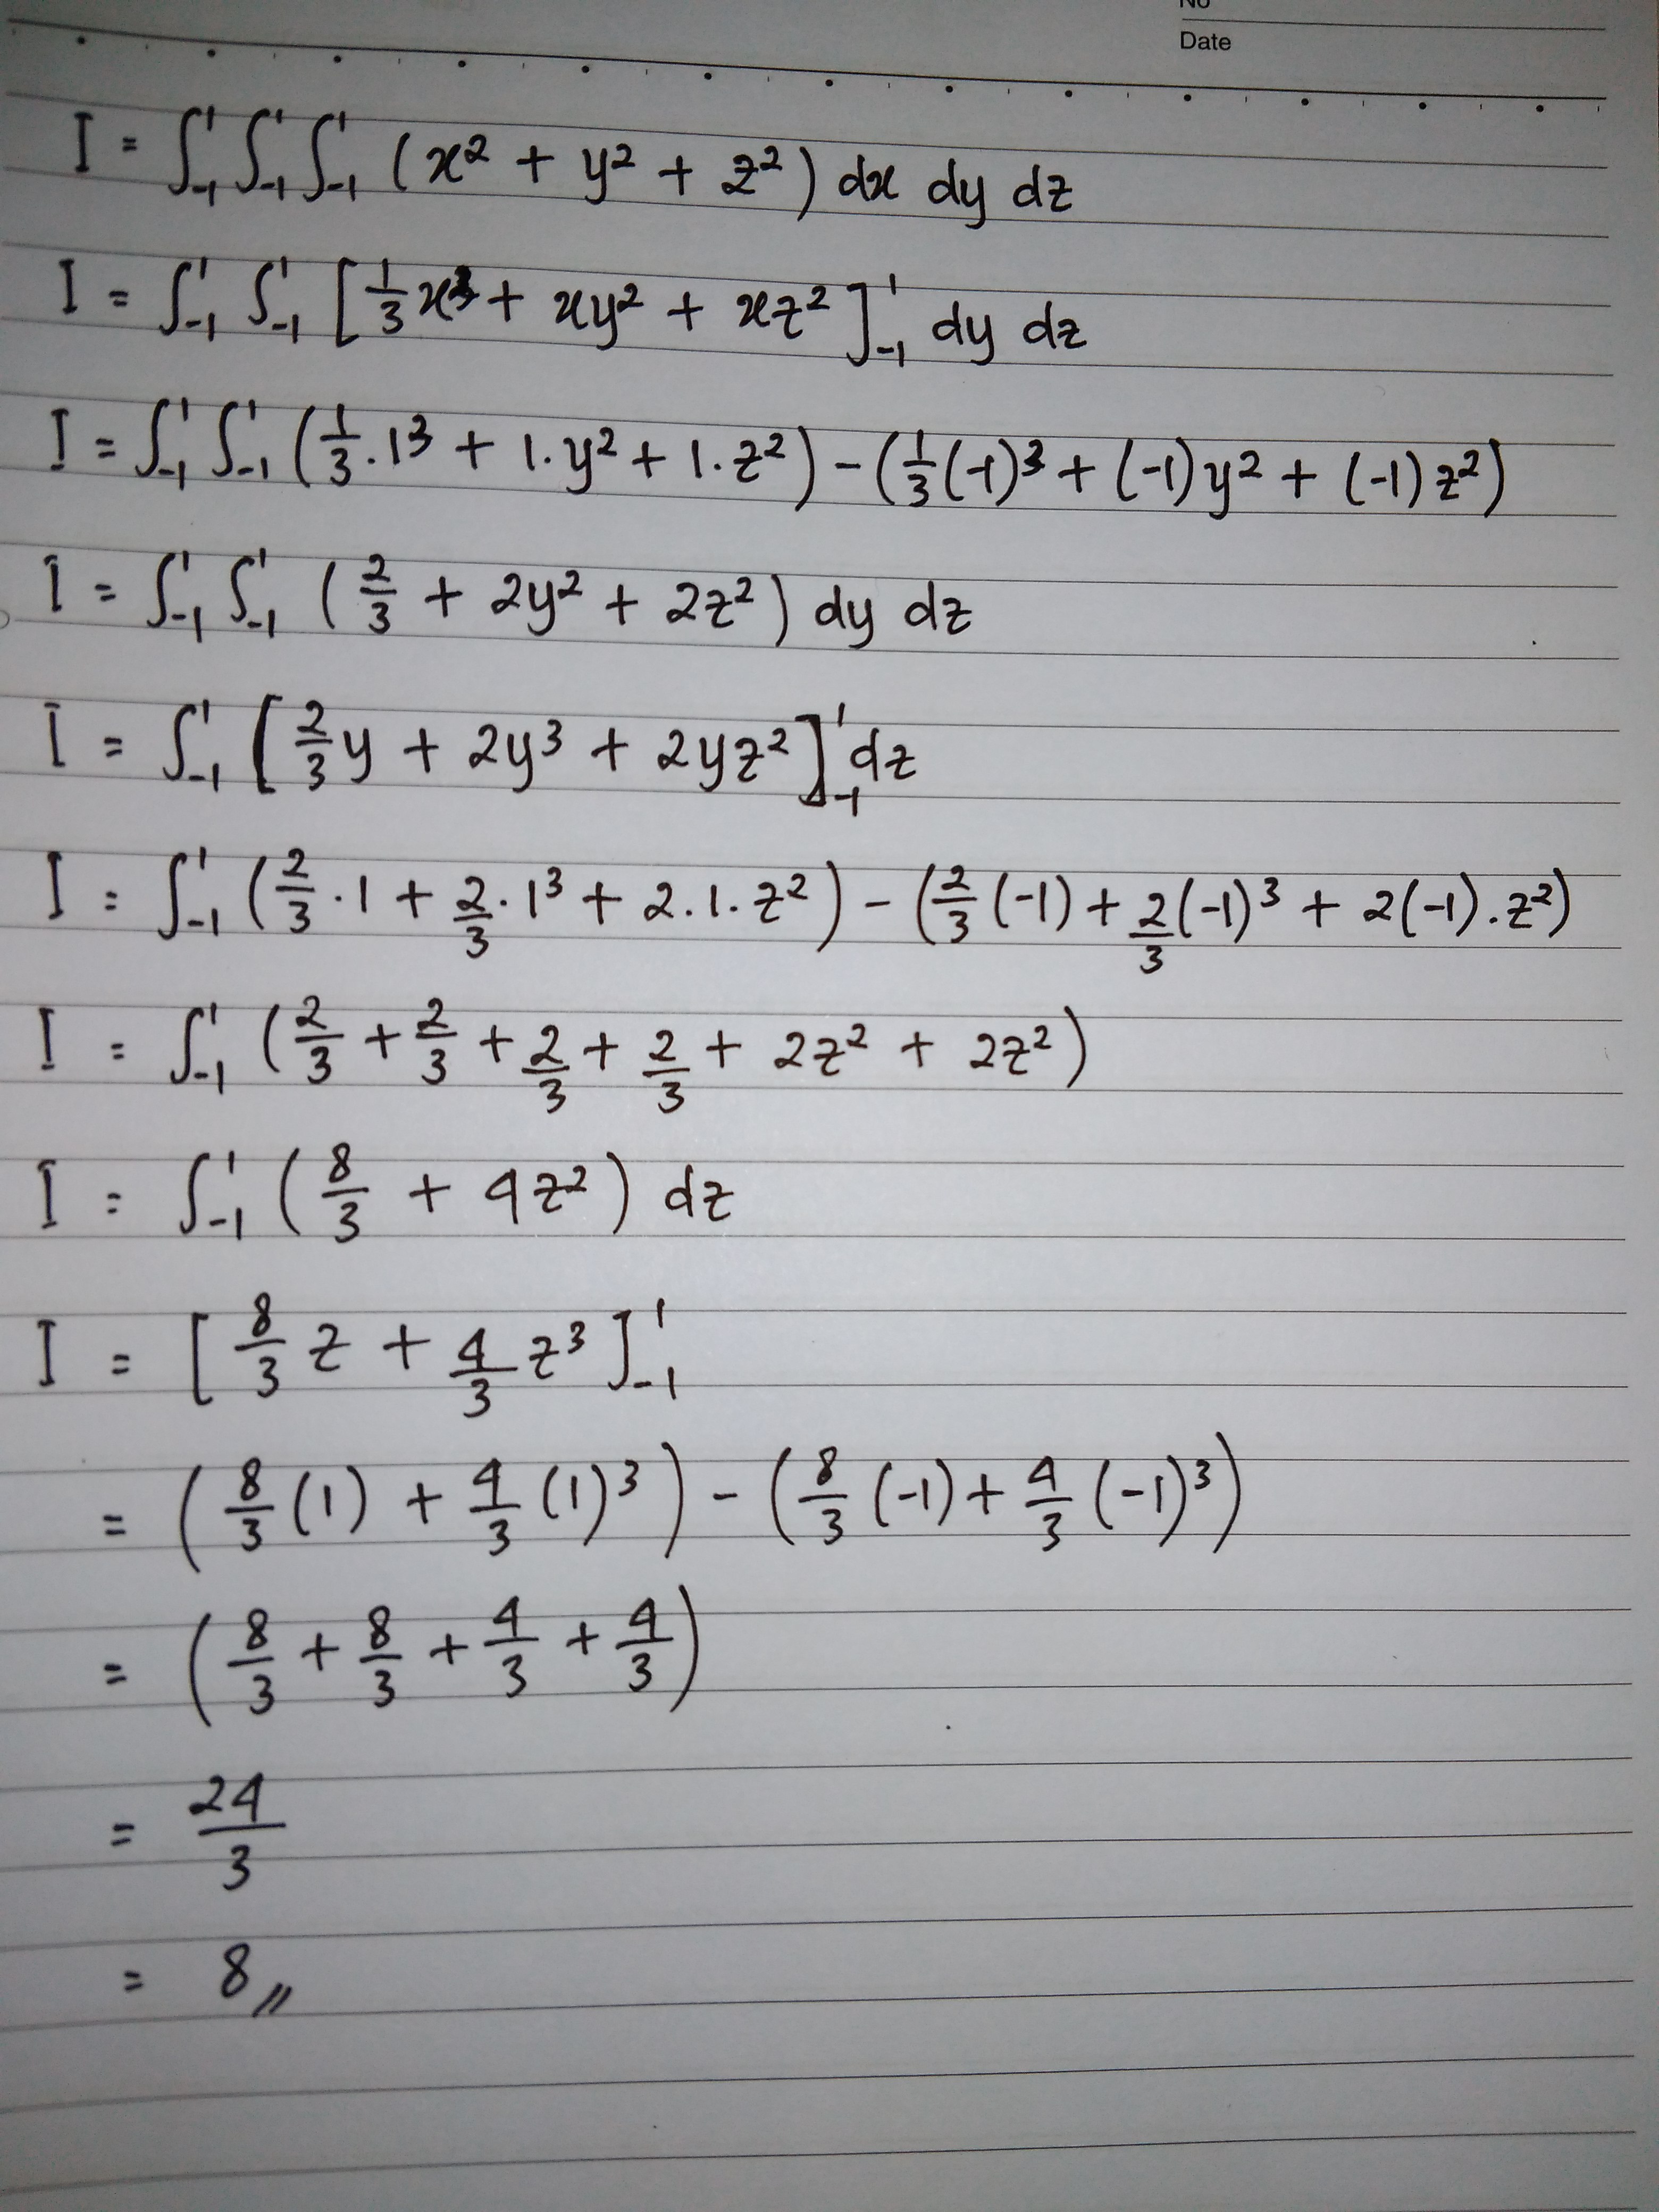 No
Date
I = ∫₋₁¹ ∫₋₁¹ ∫₋₁¹ (x² + y² + z²) dx dy dz
I = ∫₋₁¹ ∫₋₁¹ [1/3 x³ + xy² + xz²]₋₁¹ dy dz
I = ∫₋₁¹ ∫₋₁¹ (1/3 . 1³ + 1 . y² + 1 . z²) - (1/3 (-1)³ + (-1) y² + (-1) z²)
I = ∫₋₁¹ ∫₋₁¹ (2/3 + 2y² + 2z²) dy dz
I = ∫₋₁¹ [2/3 y + 2y³ + 2yz²]₋₁¹ dz
I = ∫₋₁¹ (2/3 . 1 + 2/3 . 1³ + 2 . 1 . z²) - (2/3 (-1) + 2/3 (-1)³ + 2(-1) . z²)
I = ∫₋₁¹ (2/3 + 2/3 + 2/3 + 2/3 + 2z² + 2z²)
I = ∫₋₁¹ (8/3 + 4z²) dz
I = [8/3 z + 4/3 z³]₋₁¹
= (8/3 (1) + 4/3 (1)³) - (8/3 (-1) + 4/3 (-1)³)
= (8/3 + 8/3 + 4/3 + 4/3)
= 24/3
= 8 //